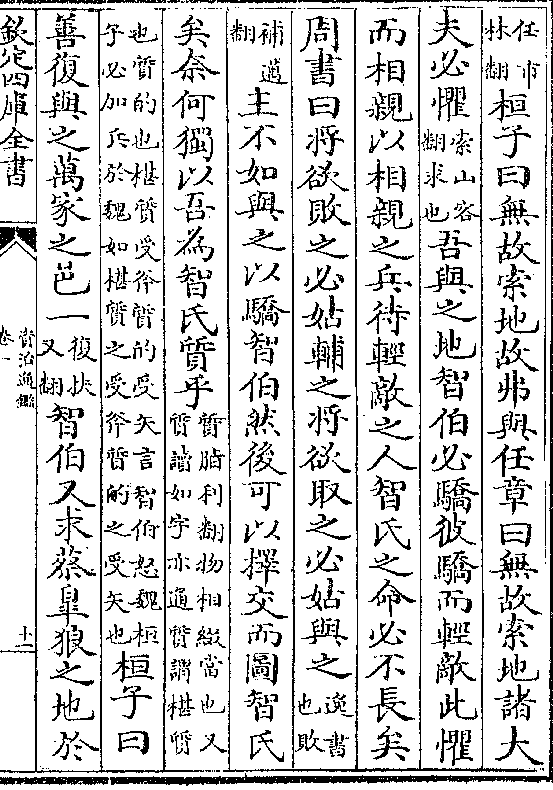 任市林翻桓子曰無故索地故弗與任章曰無故索地諸大
夫必懼索山客翻求也吾與之地智伯必驕彼驕而輕敵此懼
而相親以相親之兵待輕敵之人智氏之命必不長矣
周書曰將欲敗之必姑輔之將欲取之必姑與之逸書也敗
補邁翻主不如與之以驕智伯然後可以擇交而圖智氏
矣奈何獨以吾為智氏質乎質脂利翻物相綴當也又質讀如字亦通質謂椹質
也質的也椹質受斧質的受矢言智伯怒魏桓子必加兵於魏如椹質之受斧質的之受矢也桓子曰
善復與之萬家之邑一復扶又翻智伯又求蔡皐狼之地於
欽定四庫全書
資治通鑑
卷一
十二